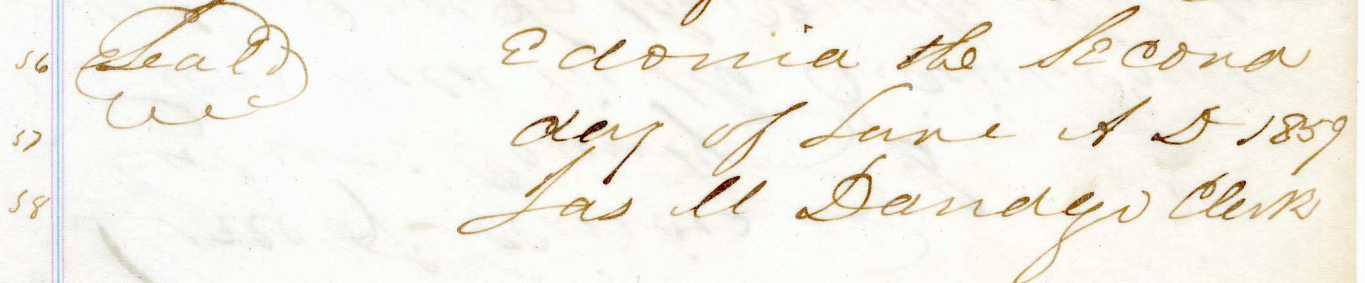 56 Seal Edonia the Second
57 day of June A D 1859
58 Jas M Clerk